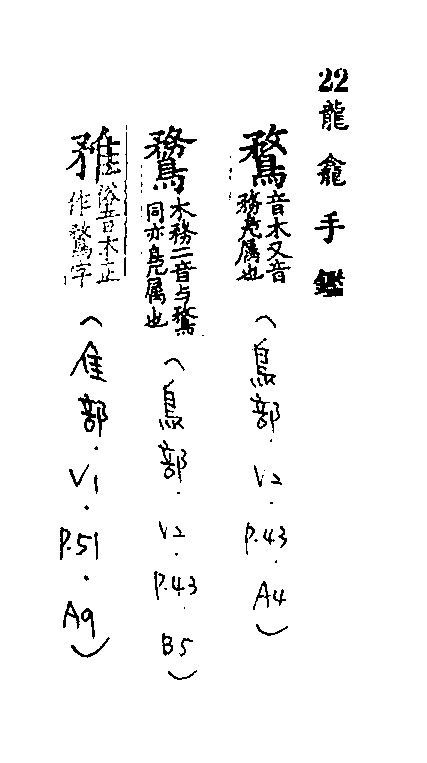 22龍龕手鑑
鶩音木又音務鳧属也（鳥部．V2．P.43．A4）
木務二音与鶩同亦鳧属也（鳥部．V2．P.43．B5）
俗音木正作鶩字（隹部．V1．P.51．A9）